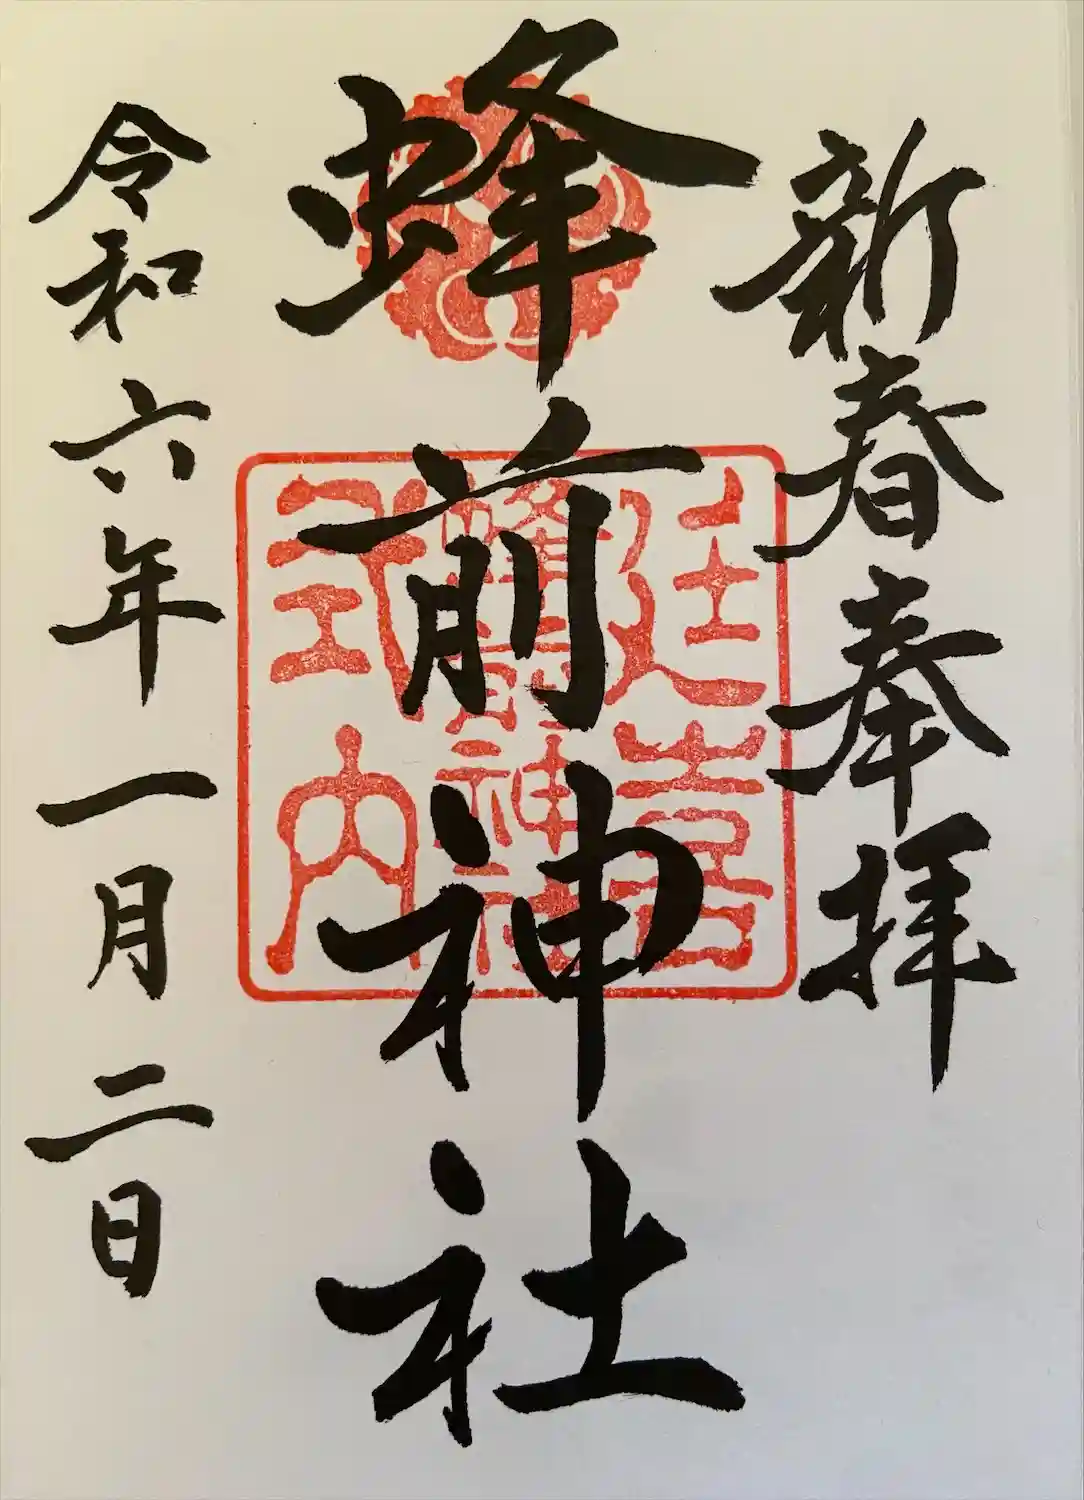 新春奉拝
蜂前神社
令和六年一月二日
延喜
蜂前神社
式内